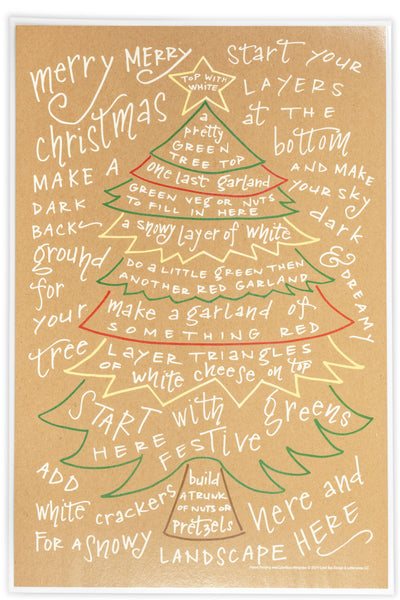 merry MERRY
christmas
MAKE A
DARK
BACK
ground
for
your
tree
start YOUR
LAYERS
at THE
bottom
AND MAKE
your sky
dark
& DREAMY
TOP WITH
WHITE
a
pretty
GREEN
TREE TOP
one last garland
GREEN VEG OR NUTS
TO FILL IN HERE
a snowy layer of white
DO A LITTLE GREEN THEN
ANOTHER RED GARLAND
make a garland of
SOMETHING RED
LAYER TRIANGLES
OF white cheese on top
START with greens
HERE FESTIVE
build
A TRUNK
OF NUTS OR
PRETZELS
ADD
white crackers
FOR A SNOWY
LANDSCAPE HERE
here and